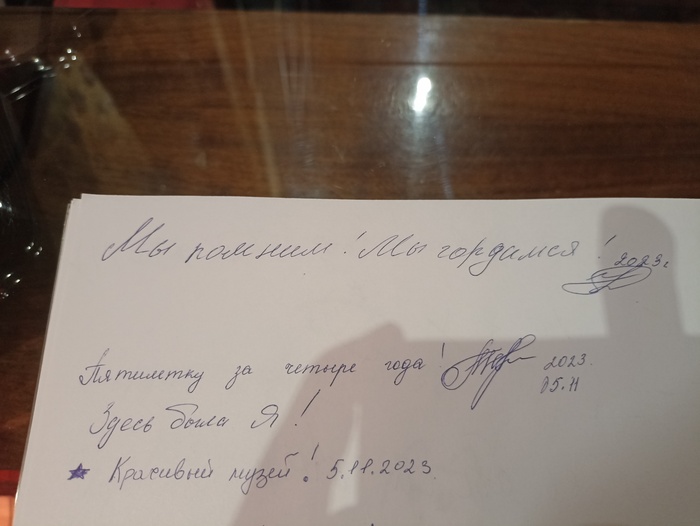 Мы помним! Мы гордимся! 2023г
Пятилетку за четыре года! 2023.
05.11
Здесь была Я!
Красивый музей! 5.11.2023.